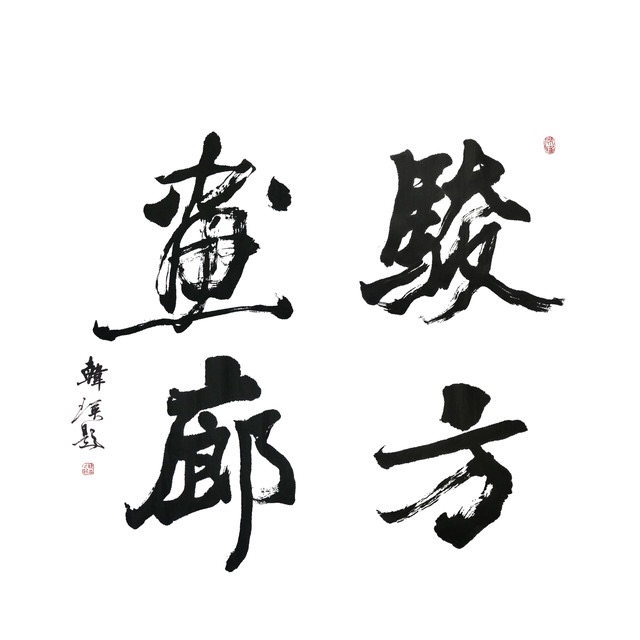 駿方
畫廊
韓題